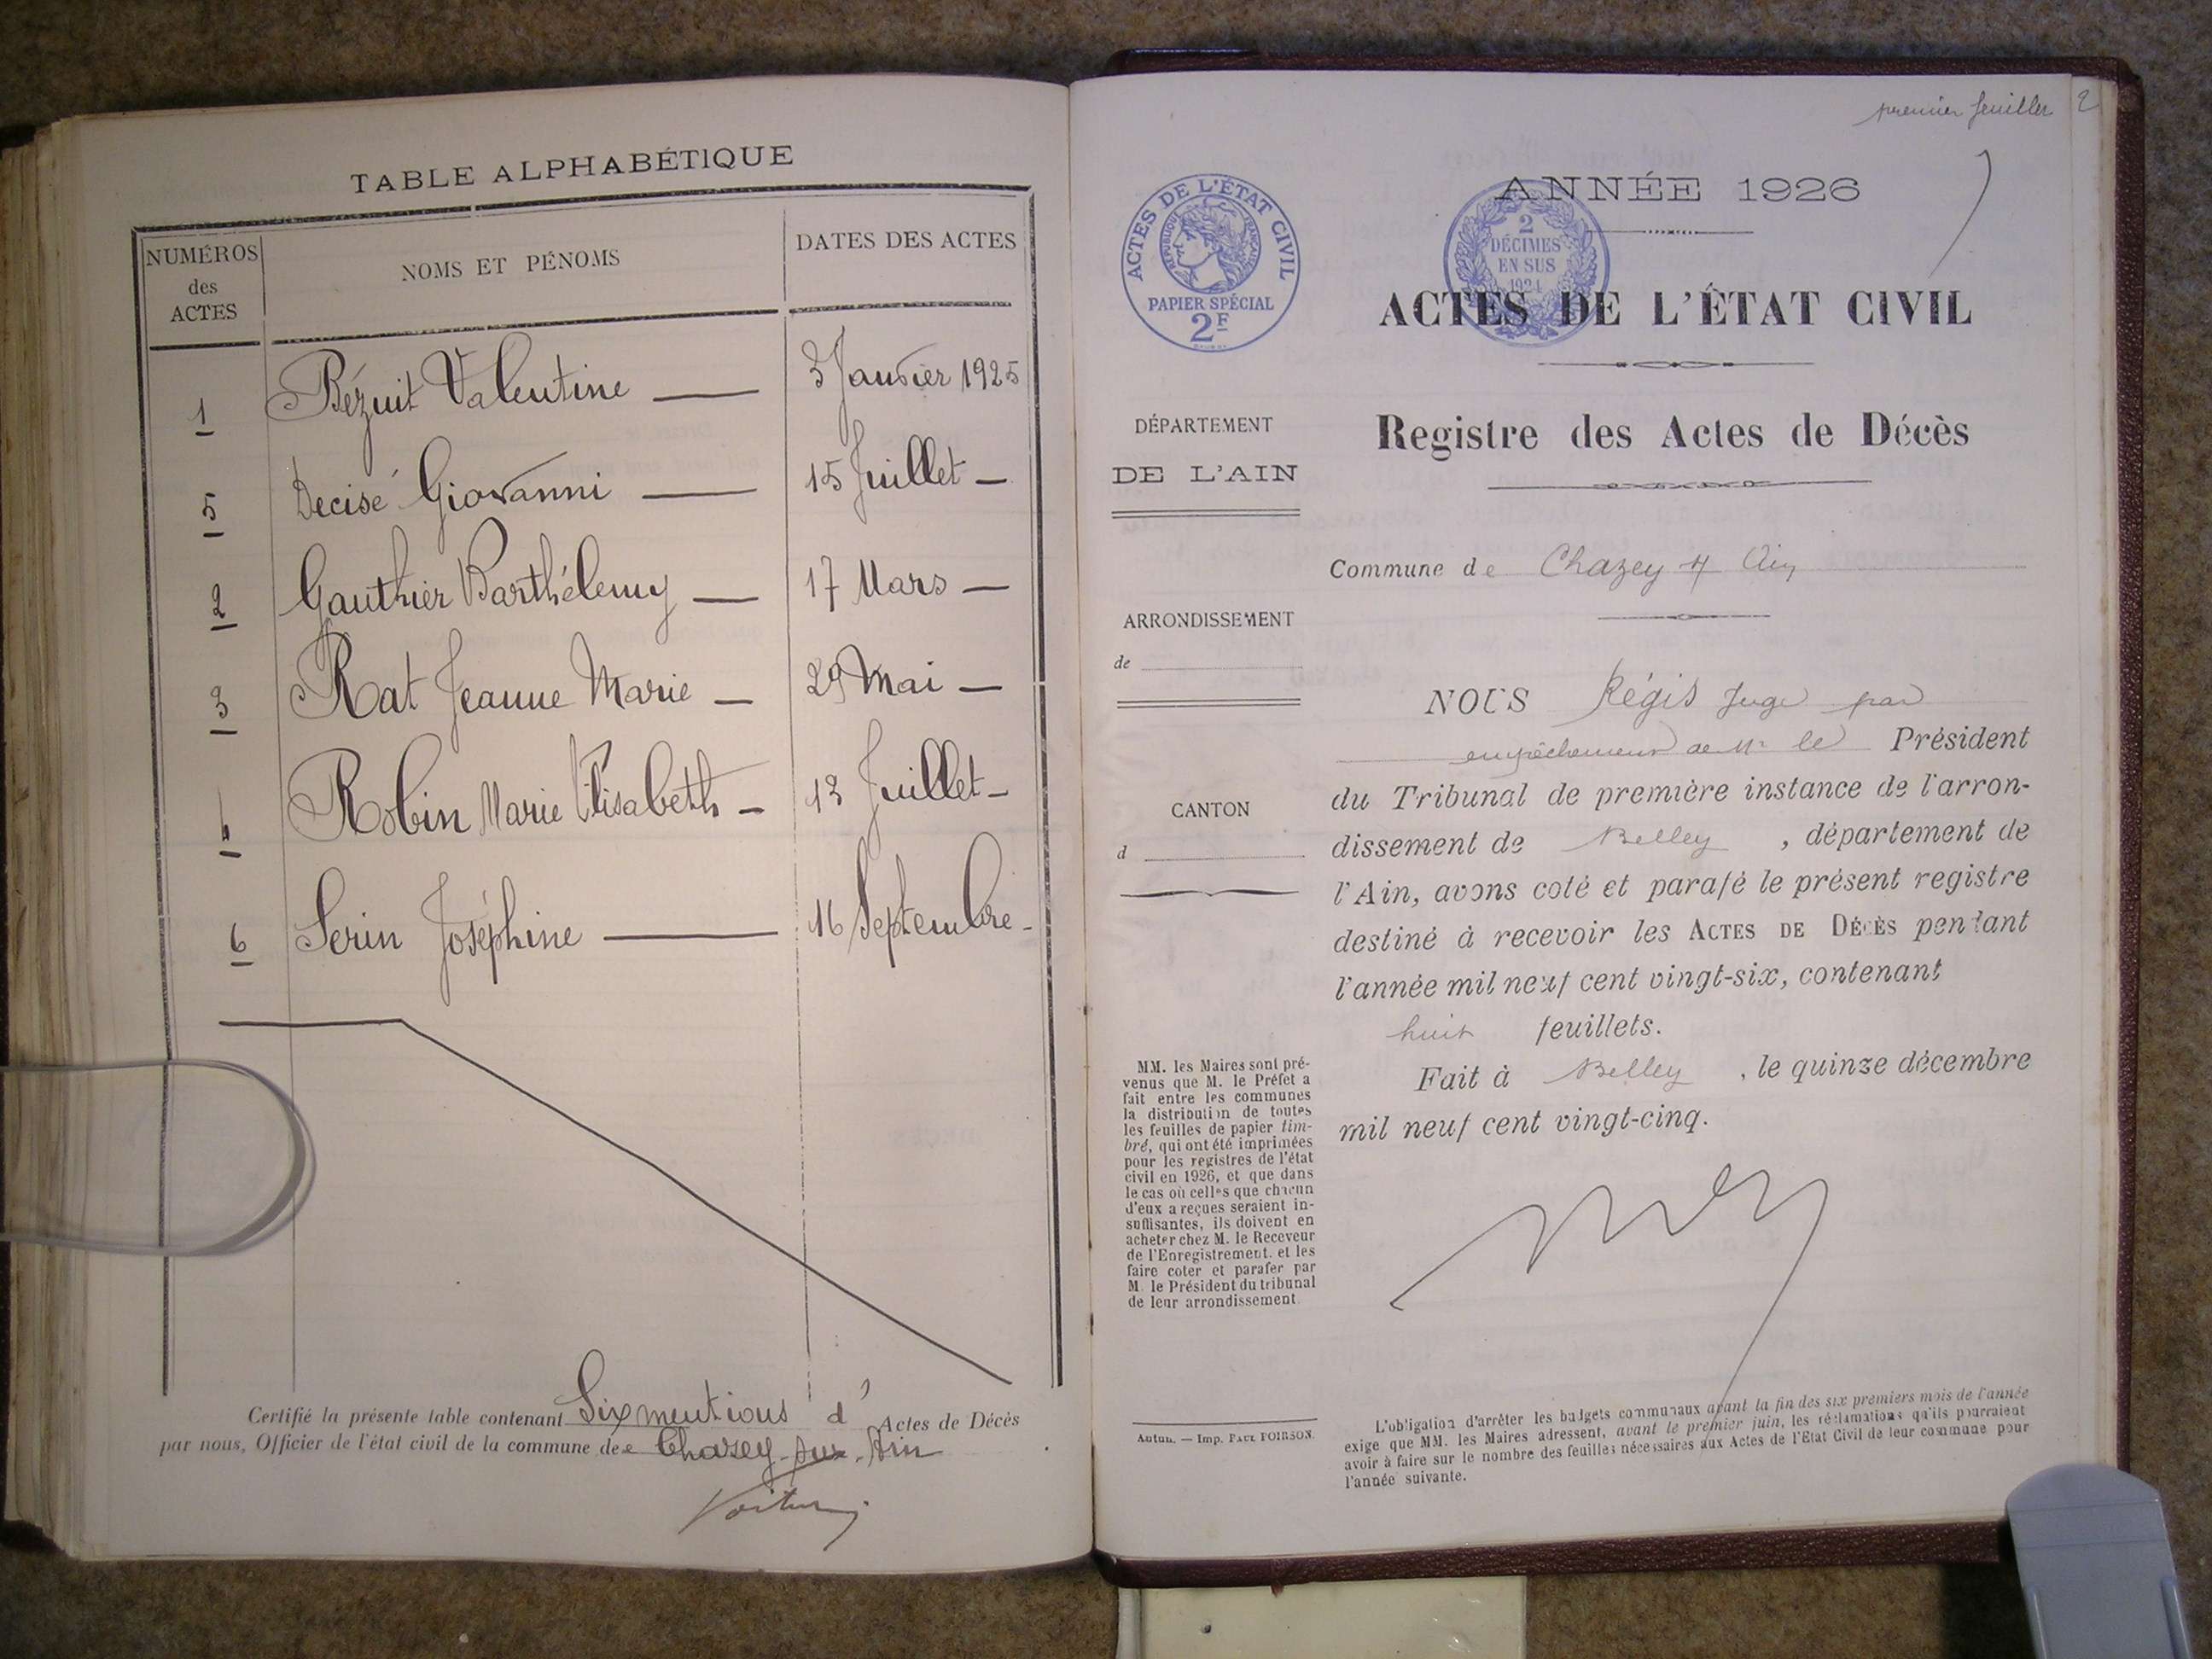 TABLE ALPHABÉTIQUE
NUMÉROS
des
ACTES
NOMS ET PÉNOMS
DATES DES ACTES
1 Bézuit Valentine — 3 Janvier 1925
5 Decisé Giovanni — 15 Juillet —
2 Gauthier Barthélemy — 17 Mars —
3 Rat Jeanne Marie — 29 Mai —
4 Robin Marie Elisabeth — 13 Juillet —
6 Serin Joséphine — 16 Septembre -
Certifié la présente table contenant Six mentions d' Actes de Décès
par nous, Officier de l'état civil de la commune de Chazey-sur-Ain
premier feuillet 2
ANNÉE 1926
ACTES DE L'ÉTAT CIVIL
RÉPUBLIQUE FRANÇAISE
PAPIER SPÉCIAL
2F
2
DÉCIMES
EN SUS
1924
ACTES DE L'ÉTAT CIVIL
Registre des Actes de Décès
DÉPARTEMENT
DE L'AIN
ARRONDISSEMENT
de
CANTON
d
Commune de Chazey s/ Ain
NOUS Régis Juge par
empêchement de Mr le Président
du Tribunal de première instance de l'arron-
dissement de Belley , département de
l'Ain, avons coté et parafé le présent registre
destiné à recevoir les ACTES DE DÉCÈS pendant
l'année mil neuf cent vingt-six, contenant
huit feuillets.
Fait à Belley , le quinze décembre
mil neuf cent vingt-cinq.
MM. les Maires sont pré-
venus que M. le Préfet a
fait entre les communes
la distribution de toutes
les feuilles de papier tim-
bré, qui ont été imprimées
pour les registres de l'état
civil en 1926, et que dans
le cas où celles que chacun
d'eux a reçues seraient in-
suffisantes, ils doivent en
acheter chez M. le Receveur
de l'Enregistrement, et les
faire coter et parafer par
M. le Président du tribunal
de leur arrondissement.
Autun. — Imp. PAUL POIRSON.
L'obligation d'arrêter les budgets communaux avant la fin des six premiers mois de l'année
exige que MM. les Maires adressent, avant le premier juin, les réclamations qu'ils pourraient
avoir à faire sur le nombre des feuilles nécessaires aux Actes de l'Etat Civil de leur commune pour
l'année suivante.